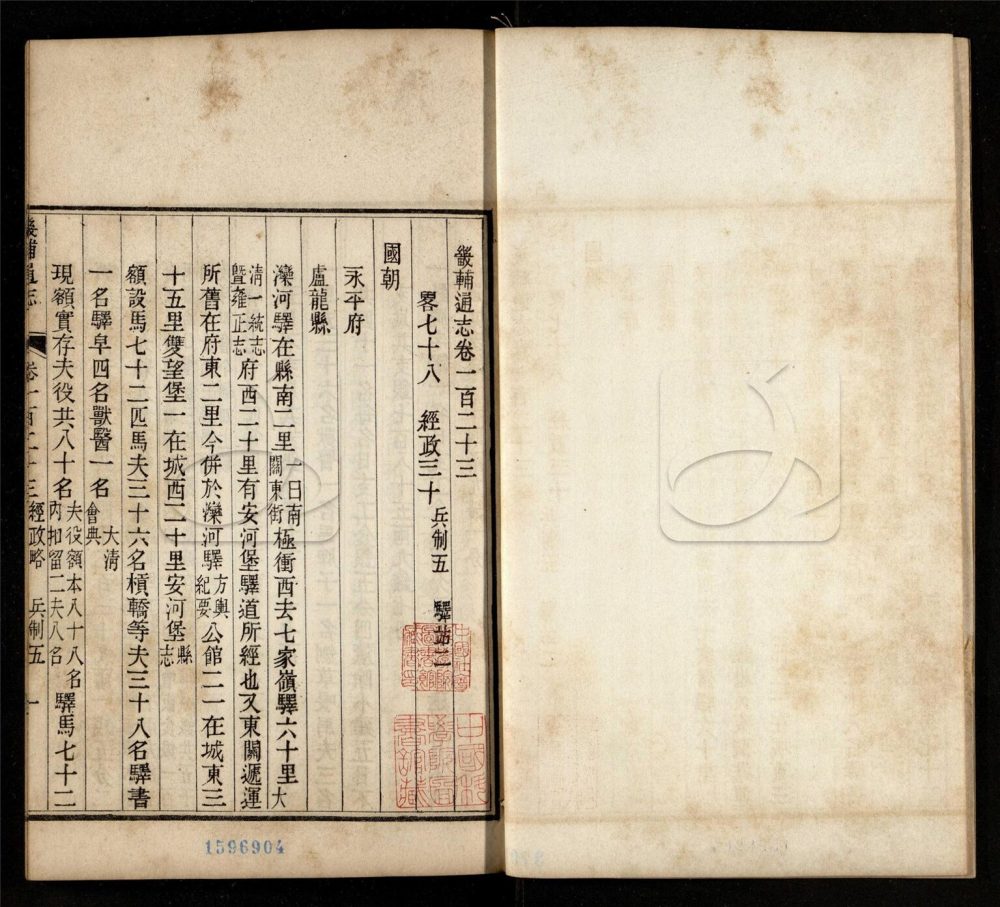 畿輔通志卷一百二十三
畧七十八　經政三十　兵制五　驛站二
國朝
永平府
盧龍縣
灤河驛在縣南二里一曰南關東街極衝西去七家嶺驛六十里大
清一統志暨雍正志府西二十里有安河堡驛道所經也又東關遞運
所舊在府東二里今併於灤河驛方輿紀要公館二一在城東三
十五里雙望堡一在城西二十里安河堡縣志
額設馬七十二匹馬夫三十六名槓轎等夫三十八名驛書
一名驛皁四名獸醫一名大清會典
現額實存夫役共八十名夫役額本八十八名內扣留二夫八名驛馬七十二
畿輔通志　卷一百二十三　經政略　兵制五　一
1596904